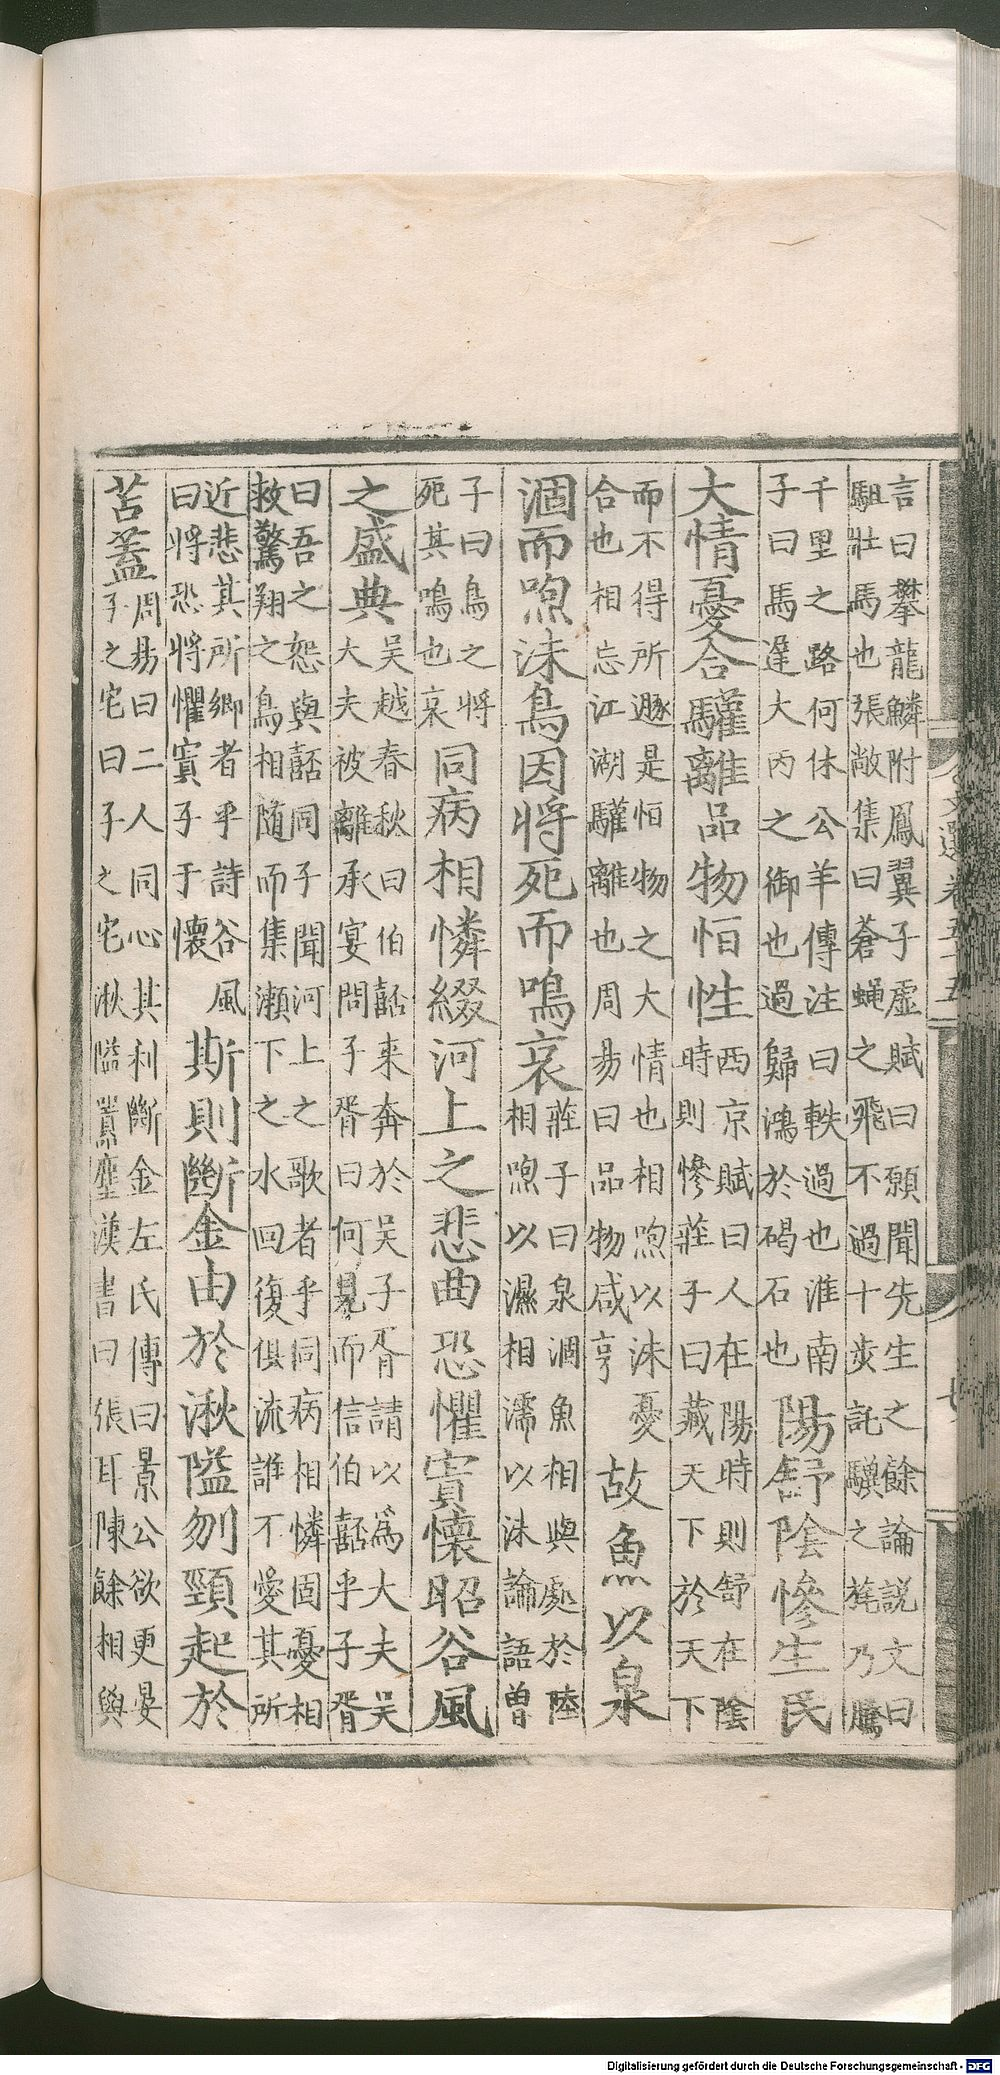 言曰攀龍鱗附鳳翼子虛賦曰願聞先生之餘論説文曰
駔壯馬也張敞集曰蒼蠅之飛不過十步託驥之旄乃騰
千里之路何休公羊傳注曰軼過也淮南
子曰馬遲大丙之御也過歸鴻於碣石也
陽舒陰慘生民
大情憂合驩離品物恒性
西京賦曰人在陽時則舒在陰
時則慘莊子曰藏天下於天下
而不得所遯是恒物之大情也相喣以沫憂
合也相忘江湖驩離也周昜曰品物咸亨
故魚以泉
涸而喣沫鳥因將死而鳴哀
莊子曰泉涸魚相與處於陸
相喣以濕相濡以沫論語曽
子曰鳥之將
死其鳴也哀
同病相憐綴河上之悲曲恐懼寘懷昭谷風
之盛典
吴越春秋曰伯嚭来奔於吴子胥請以為大夫吴
大夫被離承宴問子胥曰何見而信伯嚭乎子胥
曰吾之怨與嚭同子聞河上之歌者乎同病相憐固憂相
救驚翔之鳥相随而集瀬下之水回復俱流誰不愛其所
近悲其所鄉者乎詩谷風
曰將恐將懼寘予于懷
斯則斷金由於湫隘刎頸起於
苫蓋
周昜曰二人同心其利斷金左氏傳曰景公欲更晏
子之宅曰子之宅湫隘嚻塵漢書曰張耳陳餘相與
文選卷五十五
七
Digitalisierung gefördert durch die Deutsche Forschungsgemeinschaft - DFG